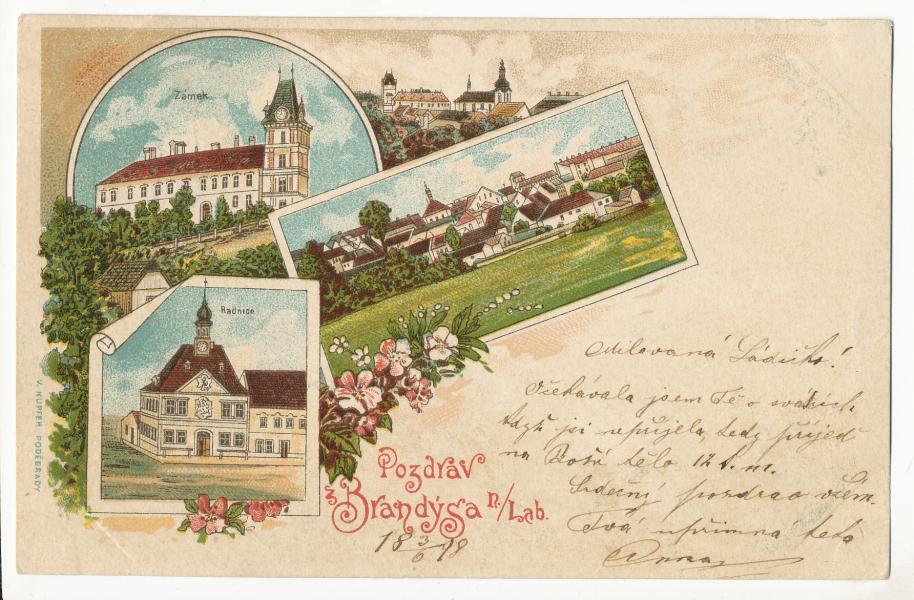 Zámek
Radnice
V. KUPFER PODĚBRADY.
Pozdrav
z Brandýsa n./Lab.
18 3/6 98
Milovaná Ládičko!
Očekávala jsem Tě o svátcích
když jsi nepřijela, tedy přijeď
na Boží tělo 12. t. m.
Srdečný pozdrav všem.
Tvá upřímná teta
Anna